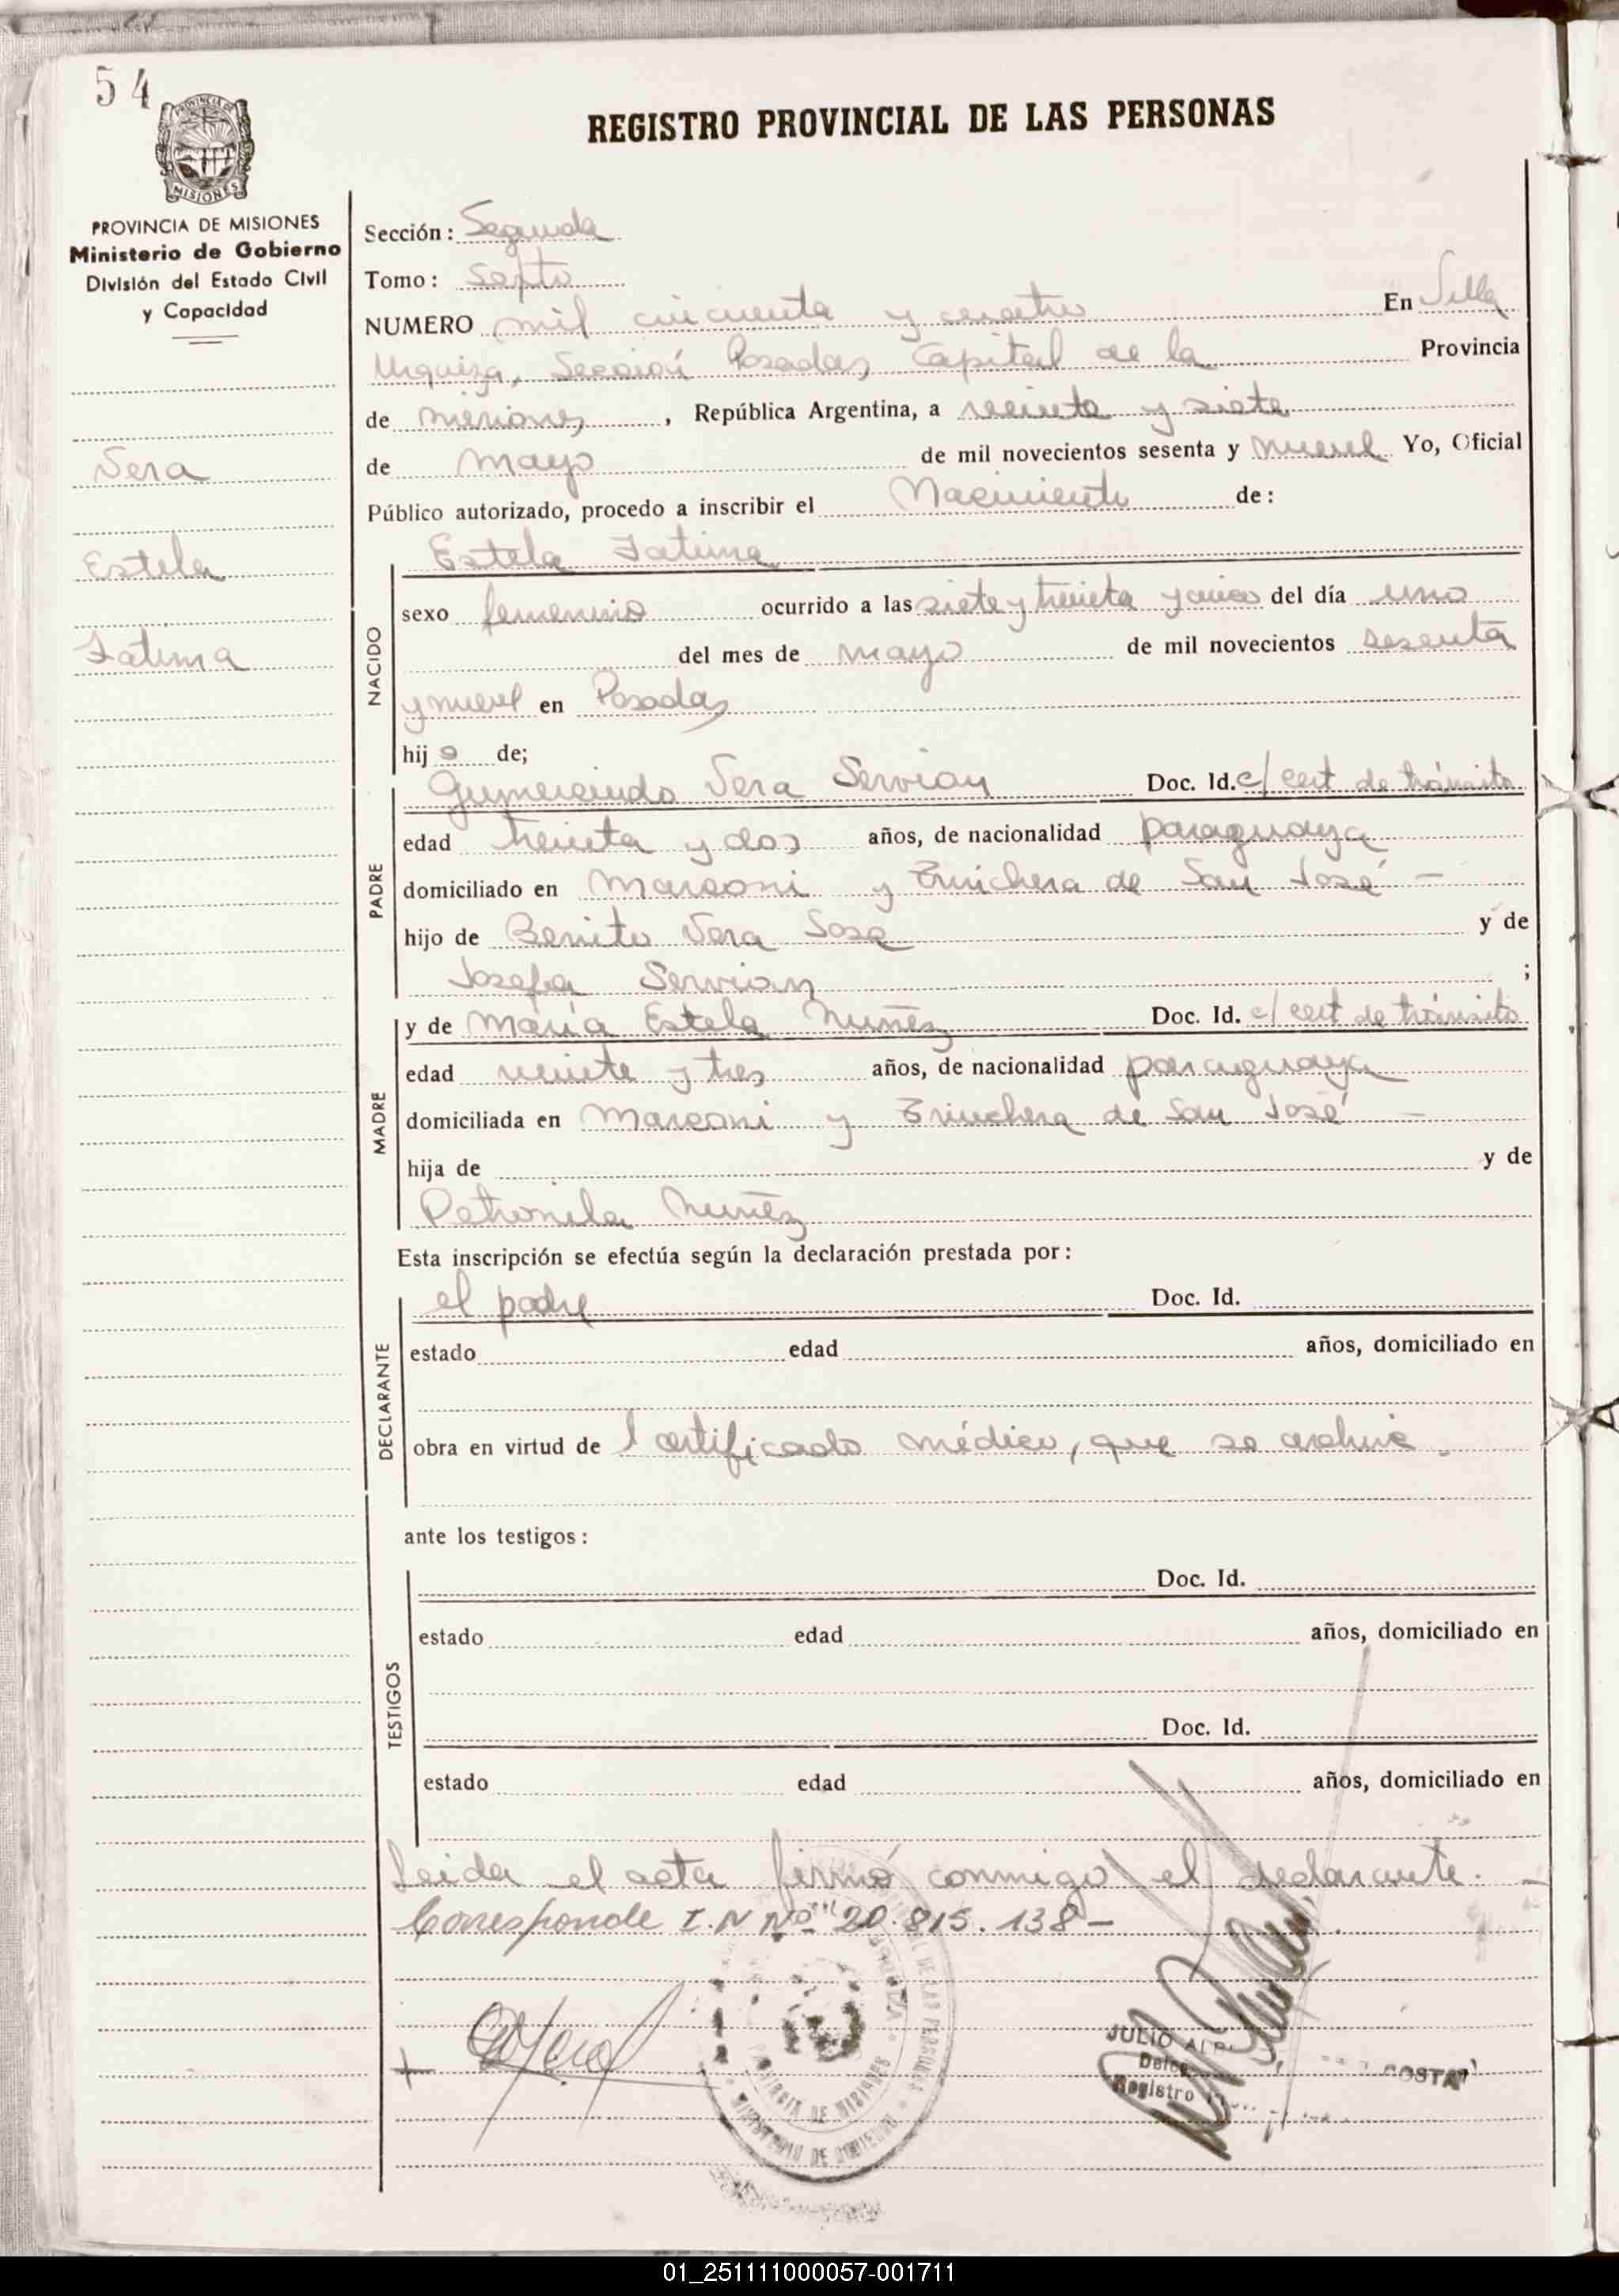 54
PROVINCIA DE
MISIONES
REGISTRO PROVINCIAL DE LAS PERSONAS
PROVINCIA DE MISIONES
Ministerio de Gobierno
División del Estado Civil
y Capacidad
Vera
Estela
Fatima
Sección: Segunda
Tomo: Septo
NUMERO mil cincuenta y cuatro En Villa
Urquiza, Sección Posadas, Capital de la Provincia
de misiones, República Argentina, a veinte y siete
de mayo de mil novecientos sesenta y nueve Yo, Oficial
Público autorizado, procedo a inscribir el Nacimiento de:
NACIDO
Estela Fatima
sexo femenino ocurrido a las siete y treinta y cinco del día uno
del mes de mayo de mil novecientos sesenta
y nueve en Posadas
hija de;
PADRE
Gumercindo Vera Servian Doc. Id. c/ cert de tránsito
edad treinta y dos años, de nacionalidad paraguaya
domiciliado en Marconi y Trinchera de San José -
hijo de Benito Vera Sosa y de
Josefa Servian ;
MADRE
y de María Estela Nuñez Doc. Id. c/ cert de tránsito
edad veinte y tres años, de nacionalidad paraguaya
domiciliada en Marconi y Trinchera de San José -
hija de y de
Petronila Nuñez
Esta inscripción se efectúa según la declaración prestada por:
DECLARANTE
el padre Doc. Id.
estado edad años, domiciliado en
obra en virtud de l certificado médico, que se archiva.
ante los testigos:
TESTIGOS
Doc. Id.
estado edad años, domiciliado en
Doc. Id.
estado edad años, domiciliado en
Leida el acta firmó conmigo el declarante. -
Corresponde I.N Nº 20.815.138-
PROVINCIA DE MISIONES
MINISTERIO DE GOBIERNO
DE LAS PERSONAS
JULIO COSTA
Registro
01_251111000057-001711